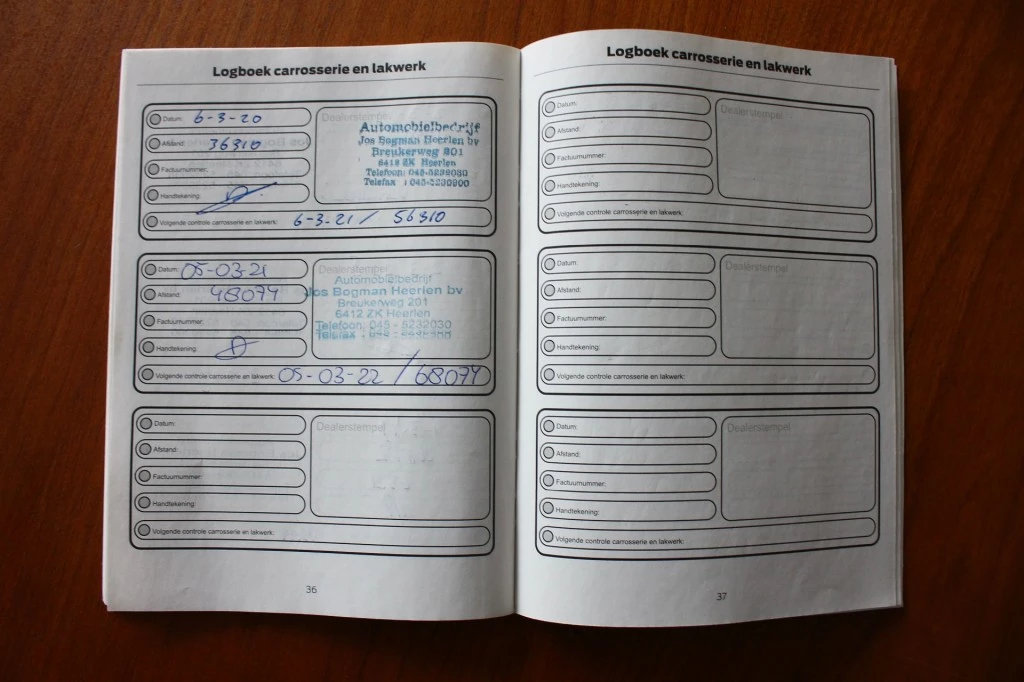 Logboek carrosserie en lakwerk
Datum: 6-3-20
Afstand: 36310
Factuurnummer:
Handtekening:
Dealerstempel
Automobielbedrijf
Jos Bogman Heerlen bv
Breukerweg 201
6412 ZK Heerlen
Telefoon: 045-5232030
Telefax : 045-5230900
Volgende controle carrosserie en lakwerk: 6-3-21 / 56310
Datum: 05-03-21
Afstand: 48074
Factuurnummer:
Handtekening:
Dealerstempel
Automobielbedrijf
Jos Bogman Heerlen bv
Breukerweg 201
6412 ZK Heerlen
Telefoon: 045 - 5232030
Telefax : 045 -
Volgende controle carrosserie en lakwerk: 05-03-22 / 68074
Datum:
Afstand:
Factuurnummer:
Handtekening:
Dealerstempel
Volgende controle carrosserie en lakwerk:
36
Logboek carrosserie en lakwerk
Datum:
Afstand:
Factuurnummer:
Handtekening:
Dealerstempel
Volgende controle carrosserie en lakwerk:
Datum:
Afstand:
Factuurnummer:
Handtekening:
Dealerstempel
Volgende controle carrosserie en lakwerk:
Datum:
Afstand:
Factuurnummer:
Handtekening:
Dealerstempel
Volgende controle carrosserie en lakwerk:
37